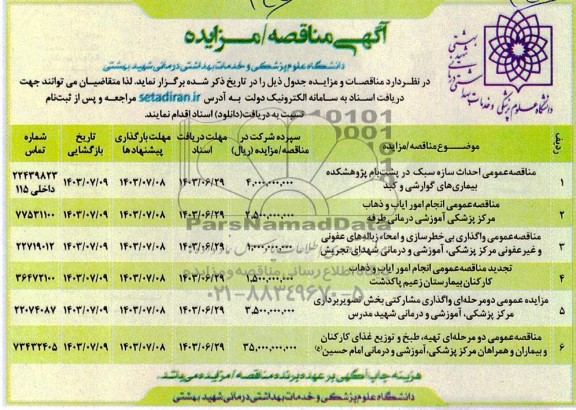 آگهی مناقصه/مزایده
دانشگاه علوم پزشکی و خدمات بهداشتی درمانی شهید بهشتی
در نظر دارد مناقصات و مزایده جدول ذیل را در تاریخ ذکر شده برگزار نماید. لذا متقاضیان می توانند جهت
دریافت اسناد به سامانه الکترونیک دولت به آدرس setadiran.ir مراجعه و پس از ثبت‌نام
نسبت به دریافت(دانلود) اسناد اقدام نمایند.
دانشگاه علوم پزشکی و خدمات بهداشتی درمانی شهید بهشتی
ردیف موضوع مناقصه/مزایده سپرده شرکت در مناقصه/مزایده (ریال) مهلت دریافت اسناد مهلت بارگذاری پیشنهادها تاریخ بازگشایی شماره تماس
۱ مناقصه عمومی احداث سازه سبک در پشت‌بام پژوهشکده بیماری‌های گوارشی و کبد ۴,۰۰۰,۰۰۰,۰۰۰ ۱۴۰۳/۰۶/۲۹ ۱۴۰۳/۰۷/۰۸ ۱۴۰۳/۰۷/۰۹ ۲۲۴۳۹۸۲۳ داخلی ۱۱۵
۲ مناقصه عمومی انجام امور ایاب و ذهاب مرکز پزشکی آموزشی درمانی طرفه ۲,۵۰۰,۰۰۰,۰۰۰ ۱۴۰۳/۰۶/۲۹ ۱۴۰۳/۰۷/۰۸ ۱۴۰۳/۰۷/۰۹ ۷۷۵۳۱۱۰۰
۳ مناقصه عمومی واگذاری بی‌خطرسازی و امحاء زباله‌های عفونی و غیر عفونی مرکز پزشکی، آموزشی و درمانی شهدای تجریش ۱,۰۰۰,۰۰۰,۰۰۰ ۱۴۰۳/۰۶/۲۹ ۱۴۰۳/۰۷/۰۸ ۱۴۰۳/۰۷/۰۹ ۲۲۷۱۹۰۱۲
۴ تجدید مناقصه عمومی انجام امور ایاب و ذهاب کارکنان بیمارستان زعیم پاکدشت ۱,۵۰۰,۰۰۰,۰۰۰ ۱۴۰۳/۰۶/۲۹ ۱۴۰۳/۰۷/۰۸ ۱۴۰۳/۰۷/۰۹ ۳۶۴۷۲۱۰۰
۵ مزایده عمومی دو مرحله‌ای واگذاری مشارکتی بخش تصویربرداری مرکز پزشکی، آموزشی و درمانی شهید مدرس ۳,۵۰۰,۰۰۰,۰۰۰ ۱۴۰۳/۰۶/۲۹ ۱۴۰۳/۰۷/۰۸ ۱۴۰۳/۰۷/۰۹ ۲۲۰۷۴۰۸۷
۶ مناقصه عمومی دو مرحله‌ای تهیه، طبخ و توزیع غذای کارکنان و بیماران و همراهان مرکز پزشکی، آموزشی و درمانی امام حسین(ع) ۳۵,۰۰۰,۰۰۰,۰۰۰ ۱۴۰۳/۰۶/۲۹ ۱۴۰۳/۰۷/۰۸ ۱۴۰۳/۰۷/۰۹ ۷۳۴۳۲۴۰۵
ParsNamadData
۰۲۱-۸۸۳۴۹۶۷۰-۵
هزینه چاپ آگهی بر عهده برنده مناقصه/مزایده می‌باشد.
دانشگاه علوم پزشکی و خدمات بهداشتی درمانی شهید بهشتی